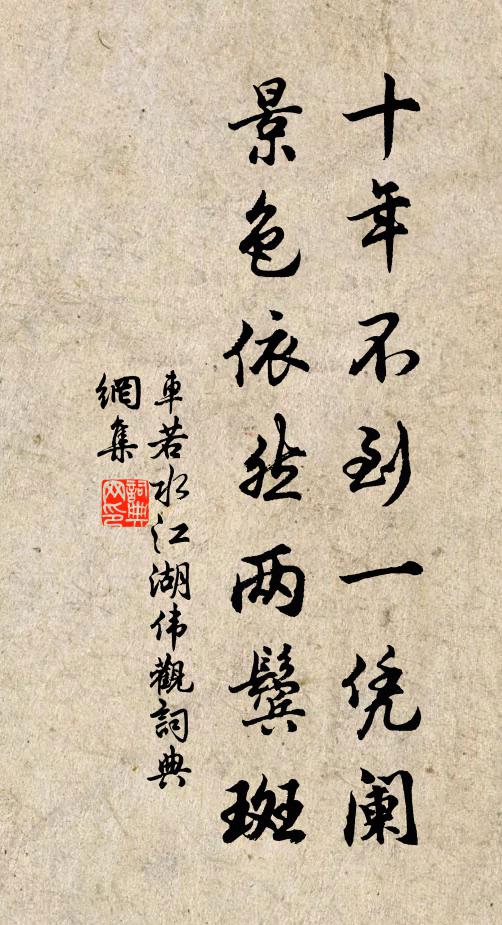 十年不到一凭阑
景色依然两鬓斑
車若水江湖伟觀詞典
網集
詞典
网印